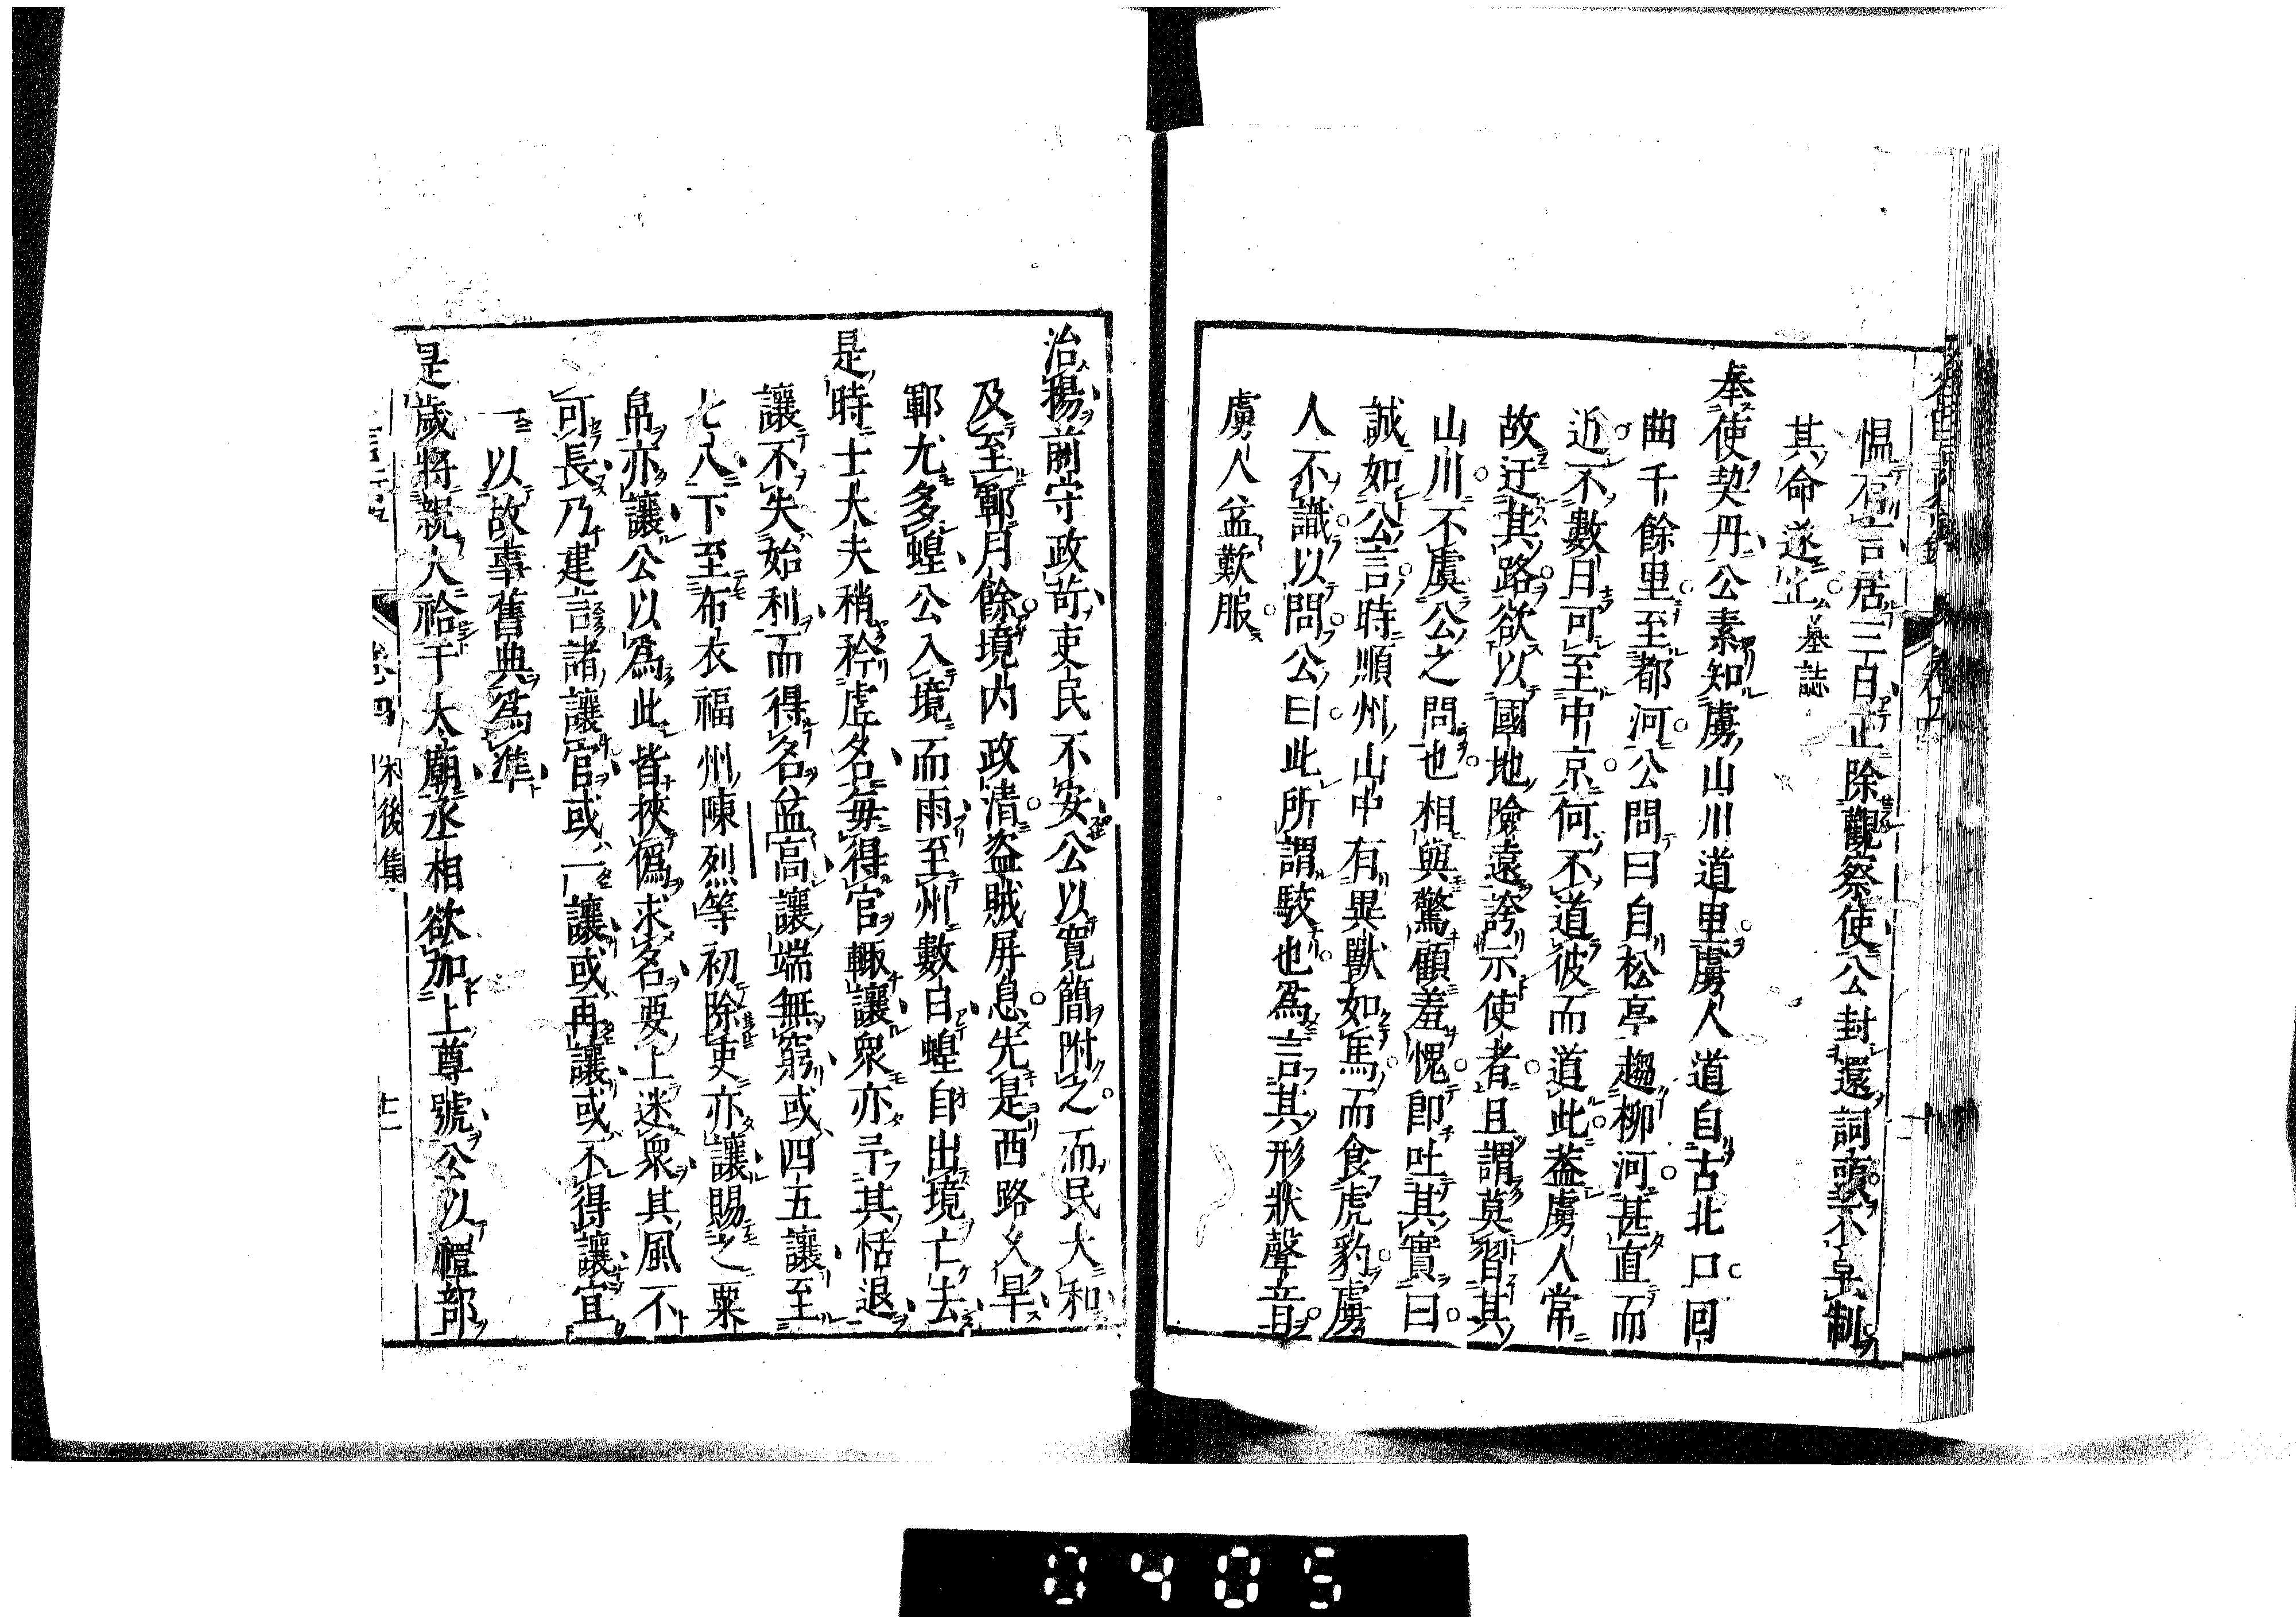 慍有言居三日正除觀察使公封還詞頭不草制
其命遂止 公墓誌
奉使契丹公素知虜山川道里虜人道自古北口回
曲千餘里至都河公問曰自松亭趨柳河甚直而
近不數日可至中京何不道彼而道此蓋虜人常
故迂其路欲以國地險遠誇示使者且謂莫習其
山川不虞公之問也相與驚顧羞愧卽吐其實曰
誠如公言時順州山中有異獸如馬而食虎豹虜
人不識以問公曰此所謂駮也爲言其形狀聲音
虜人益歎服
治揚前守政苛吏民不安公以寬簡附之而民大和
及至鄆月餘境内政清盗賊屏息先是西路久旱
鄆尤多蝗公入境而雨至州數日蝗自出境亡去
是時士大夫稍矜虚名每得官輒讓衆亦予其恬退
讓不失始利而得名益高讓端無窮或四五讓至
七八下至布衣福州陳烈等初除吏亦讓賜之粟
帛亦讓公以爲此皆挾僞求名要上迷衆其風不
可長乃建言諸讓官或一讓或再讓或不得讓宜
一以故事舊典爲準
是歲將親大祫于太廟丞相欲加上尊號公以禮部
卷四 宋後集 十二
0405